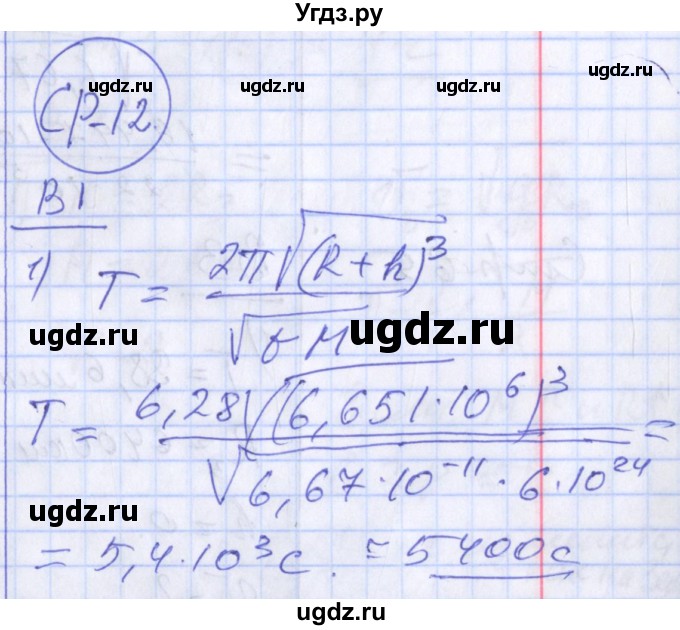 Угдз.ру
ugdz.ru ugdz.ru ugdz.ru
СР-12.
В1
1) T = 2π√(R+h)³ / √GM
ugdz.ru ugdz.ru
T = 6,28√(6,651·10⁶)³ / √6,67·10⁻¹¹·6·10²⁴ =
ugdz.ru ugdz.ru
= 5,4·10³ с. = 5400с
ugdz.ru